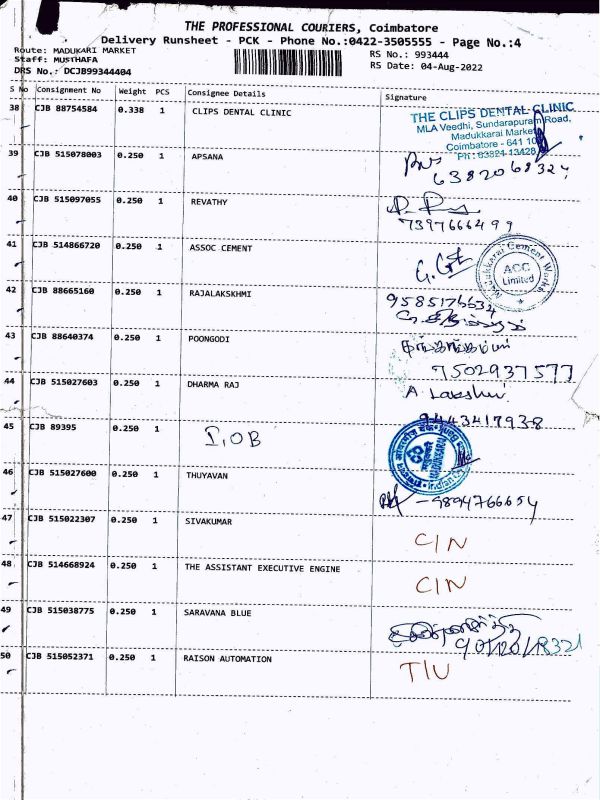 THE PROFESSIONAL COURIERS, Coimbatore
Delivery Runsheet - PCK - Phone No.:0422-3505555 - Page No.:4
Route: MADUKARI MARKET
Staff: MUSTHAFA
DRS No.: DCJB99344404
RS No.: 993444
RS Date: 04-Aug-2022
S No Consignment No Weight PCS Consignee Details Signature
38 CJB 88754584 0.338 1 CLIPS DENTAL CLINIC
THE CLIPS DENTAL CLINIC
MLA Veedhi, Sundarapuram Road,
Madukkarai Market
Coimbatore - 641 10
Ph: 63824 13428
39 CJB 515078003 0.250 1 APSANA
40 CJB 515097055 0.250 1 REVATHY
7397666499
41 CJB 514866720 0.250 1 ASSOC CEMENT
Madukkarai Cement Works
ACC
Limited
42 CJB 88665160 0.250 1 RAJALAKSHMI
9585176632
43 CJB 88640374 0.250 1 POONGODI
7502937577
44 CJB 515027603 0.250 1 DHARMA RAJ
A. Lakshmi
9443417938
45 CJB 89395 0.250 1 I.OB
46 CJB 515027600 0.250 1 THUYAVAN
- 9894766654
47 CJB 515022307 0.250 1 SIVAKUMAR C/N
48 CJB 514668924 0.250 1 THE ASSISTANT EXECUTIVE ENGINE C/N
49 CJB 515038775 0.250 1 SARAVANA BLUE
50 CJB 515052371 0.250 1 RAISON AUTOMATION T/U